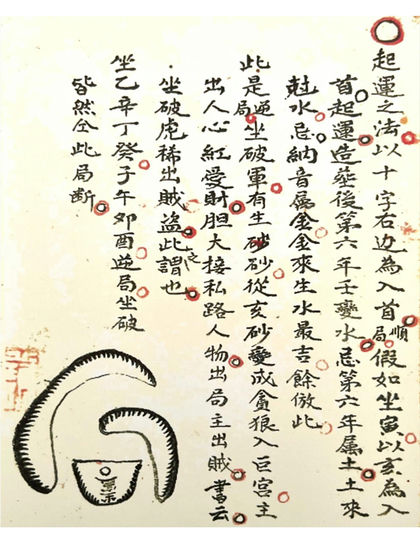 起運之法以十字右边為入首順局假如坐寅以亥為入
首起運造塟後第六年壬變水忌第六年属土土來
尅水忌納音属金金來生水最吉餘倣此
此是逆局坐破軍有生砂砂從亥砂變成貪狼入巨宮主
出人心紅愛財胆大接私路人物出局主出賊書云
坐破虎稀出賊盗此之謂也
坐乙辛丁癸子午卯酉逆局坐破
皆然仝此局断